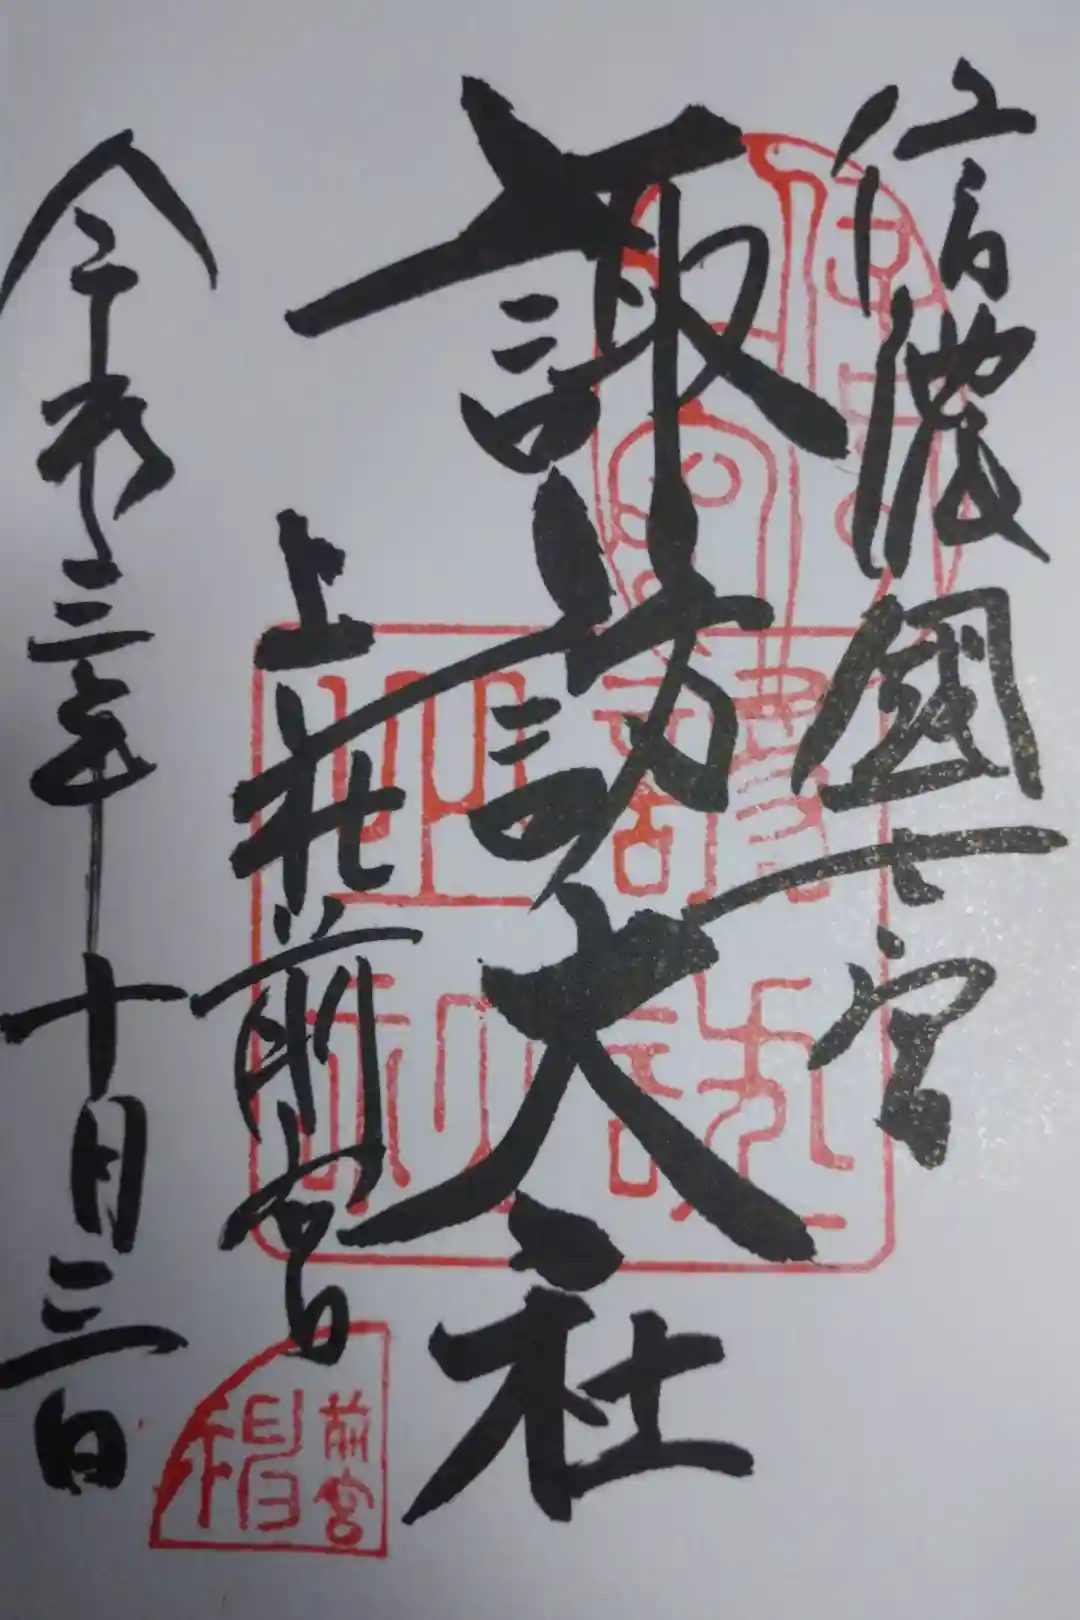 信濃國一之宮
諏訪大社
上社前宮
令和三年十月三日
前宮